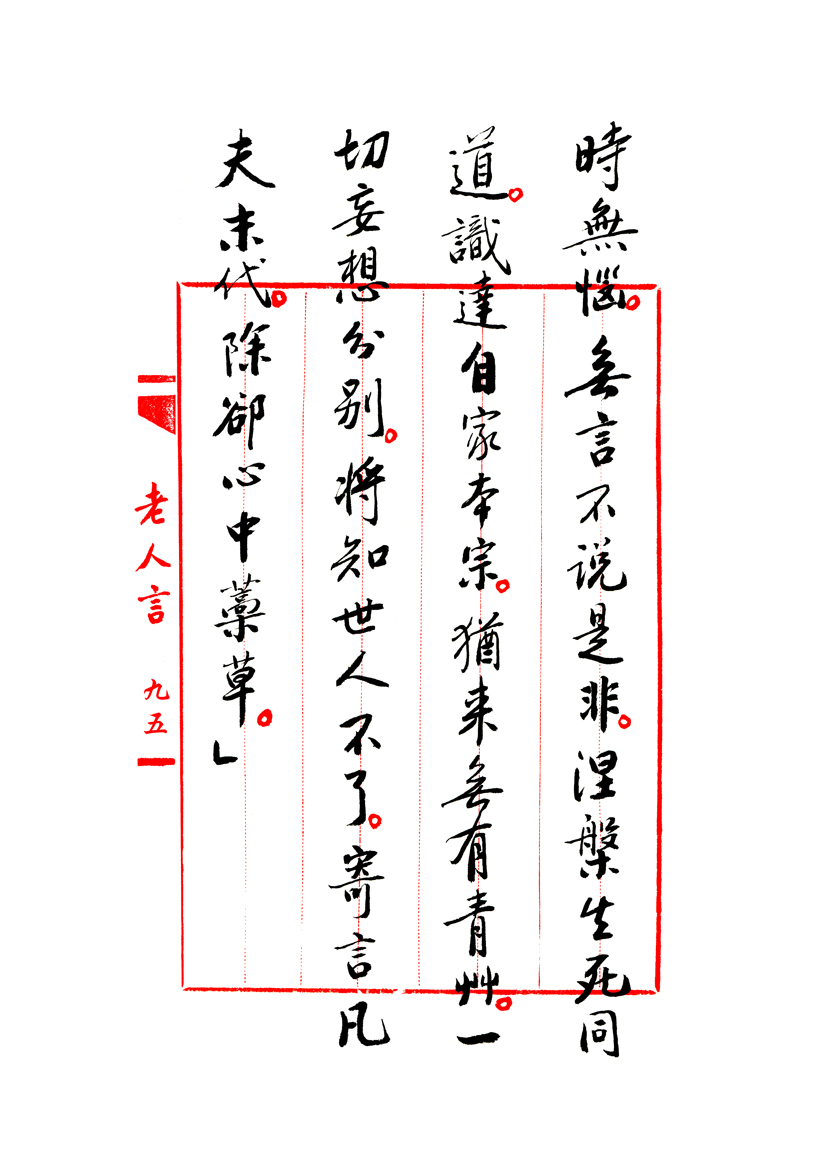 時無惱。無言不說是非。涅槃生死同
道。識達自家本宗。猶来無有青艸。一
切妄想分别。將知世人不了。寄言凡
夫末代。除卻心中藁草。」
老人言 九五